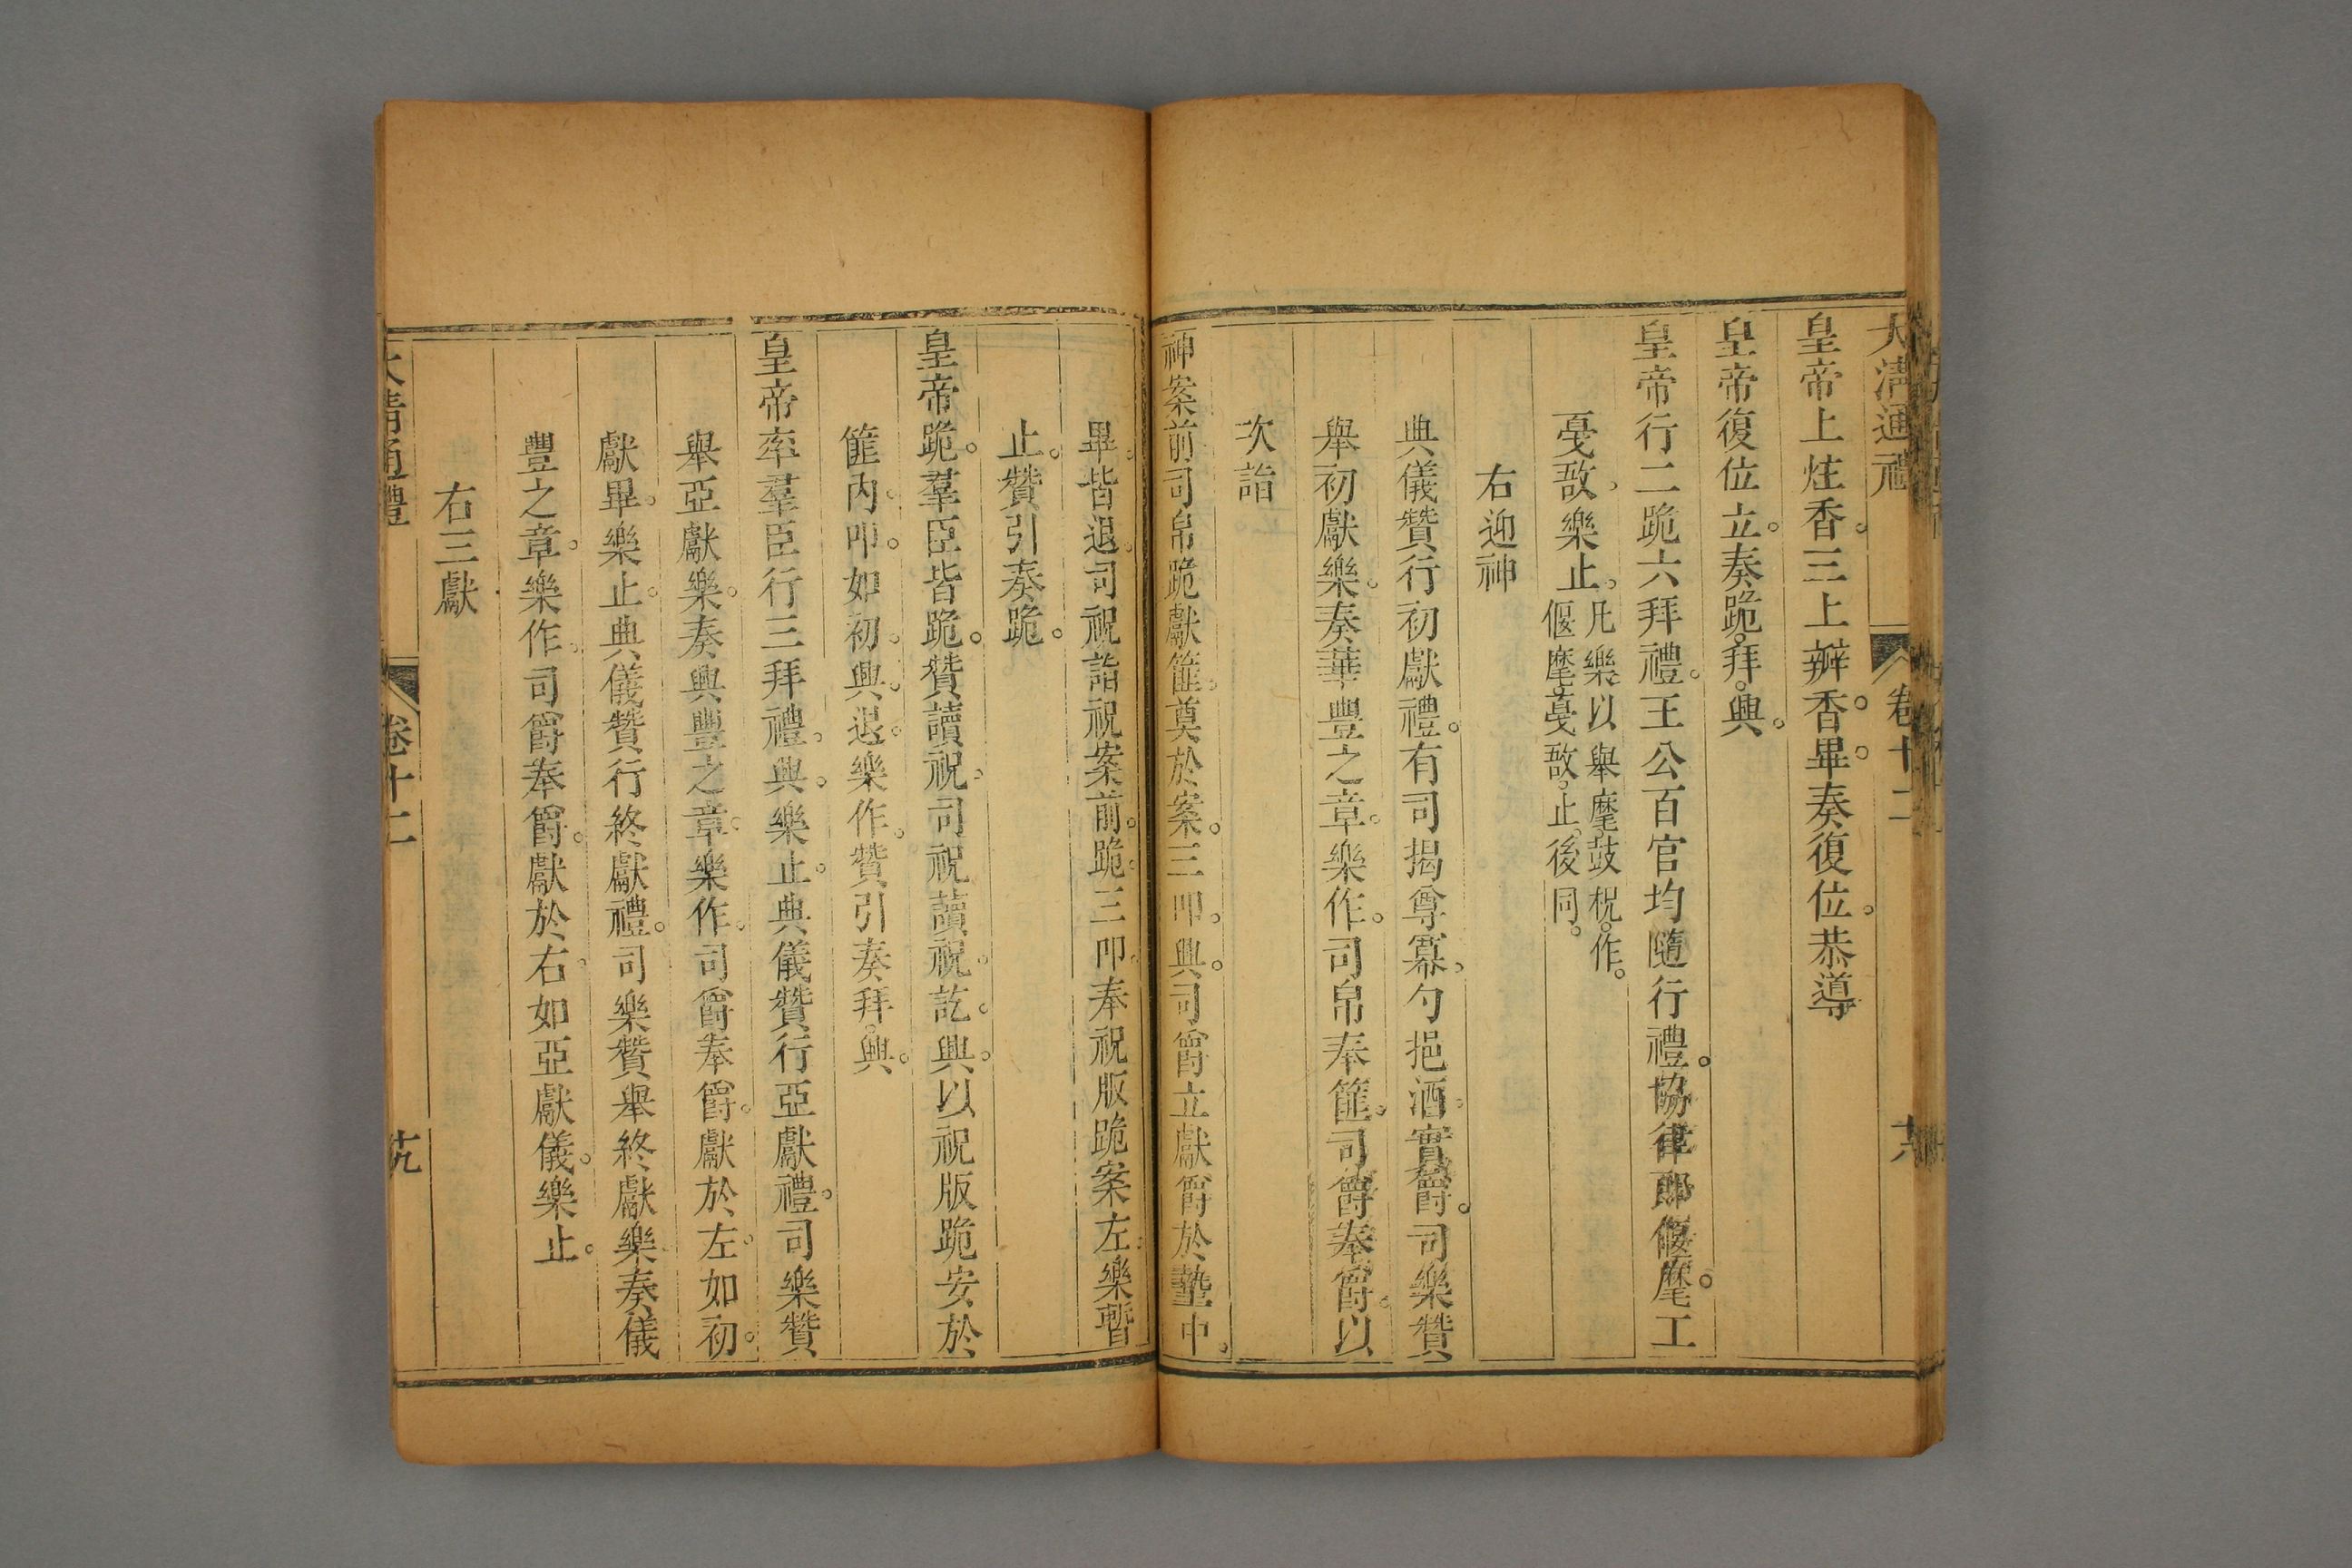 大清通禮 卷十二
皇帝上炷香。三上瓣香。畢。奏復位。恭導
皇帝復位立。奏跪。拜。興。
皇帝行二跪六拜禮。王公百官均隨行禮。協律郎偃麾。工
戞敔。樂止。凡樂。以舉麾。鼓柷。作。
偃麾。戞敔。止。後同。
右迎神
典儀贊行初獻禮。有司揭尊冪。勺挹酒。實爵。司樂贊
舉初獻樂。奏華豐之章。樂作。司帛奉篚。司爵奉爵。以
次詣
神案前。司帛跪獻篚。奠於案。三叩。興。司爵立獻爵於墊中。
畢。皆退。司祝詣祝案前。跪。三叩。奉祝版跪案左。樂暫
止。贊引奏跪。
皇帝跪。羣臣皆跪。贊讀祝。司祝讀祝。訖。興。以祝版跪安於
篚內。叩。如初。興。退。樂作。贊引奏拜。興。
皇帝率羣臣行三拜禮。興。樂止。典儀贊行亞獻禮。司樂贊
舉亞獻樂。奏興豐之章。樂作。司爵奉爵。獻於左。如初。
獻畢。樂止。典儀贊行終獻禮。司樂贊舉終獻樂。奏儀
豐之章。樂作。司爵奉爵。獻於右。如亞獻儀。樂止。
右三獻
大清通禮 卷十二